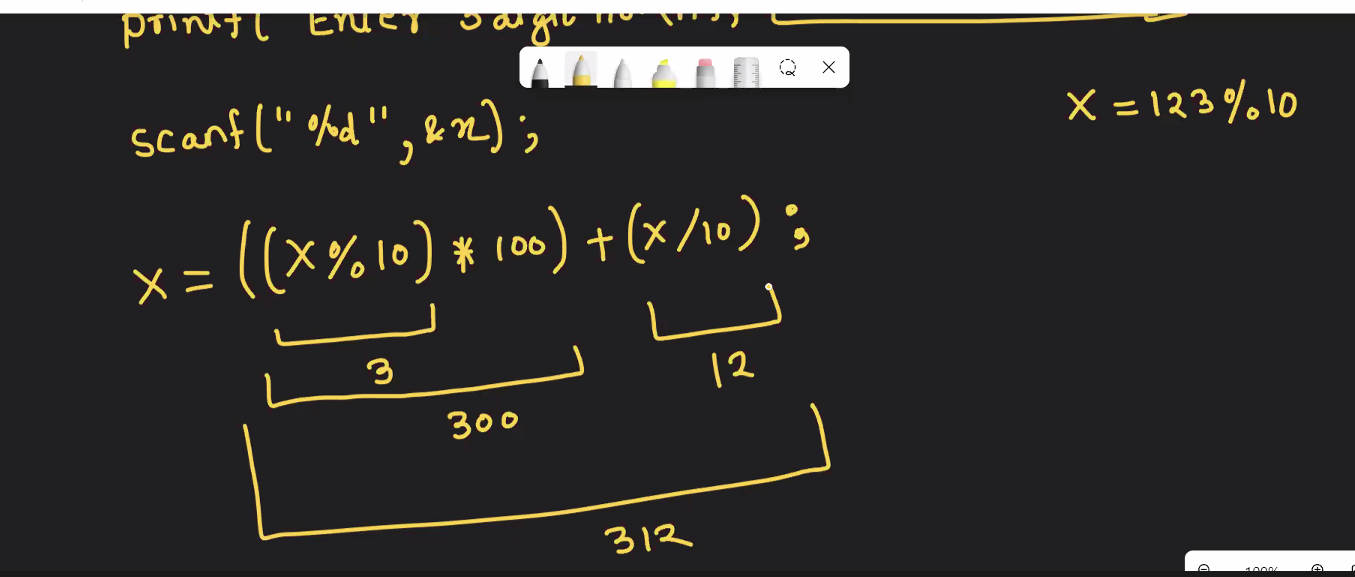 printf( Enter 3 digit no
scanf("%d", &x);
X = 123%10
X = ((X%10) * 100) + (X/10);
3
12
300
312
100%